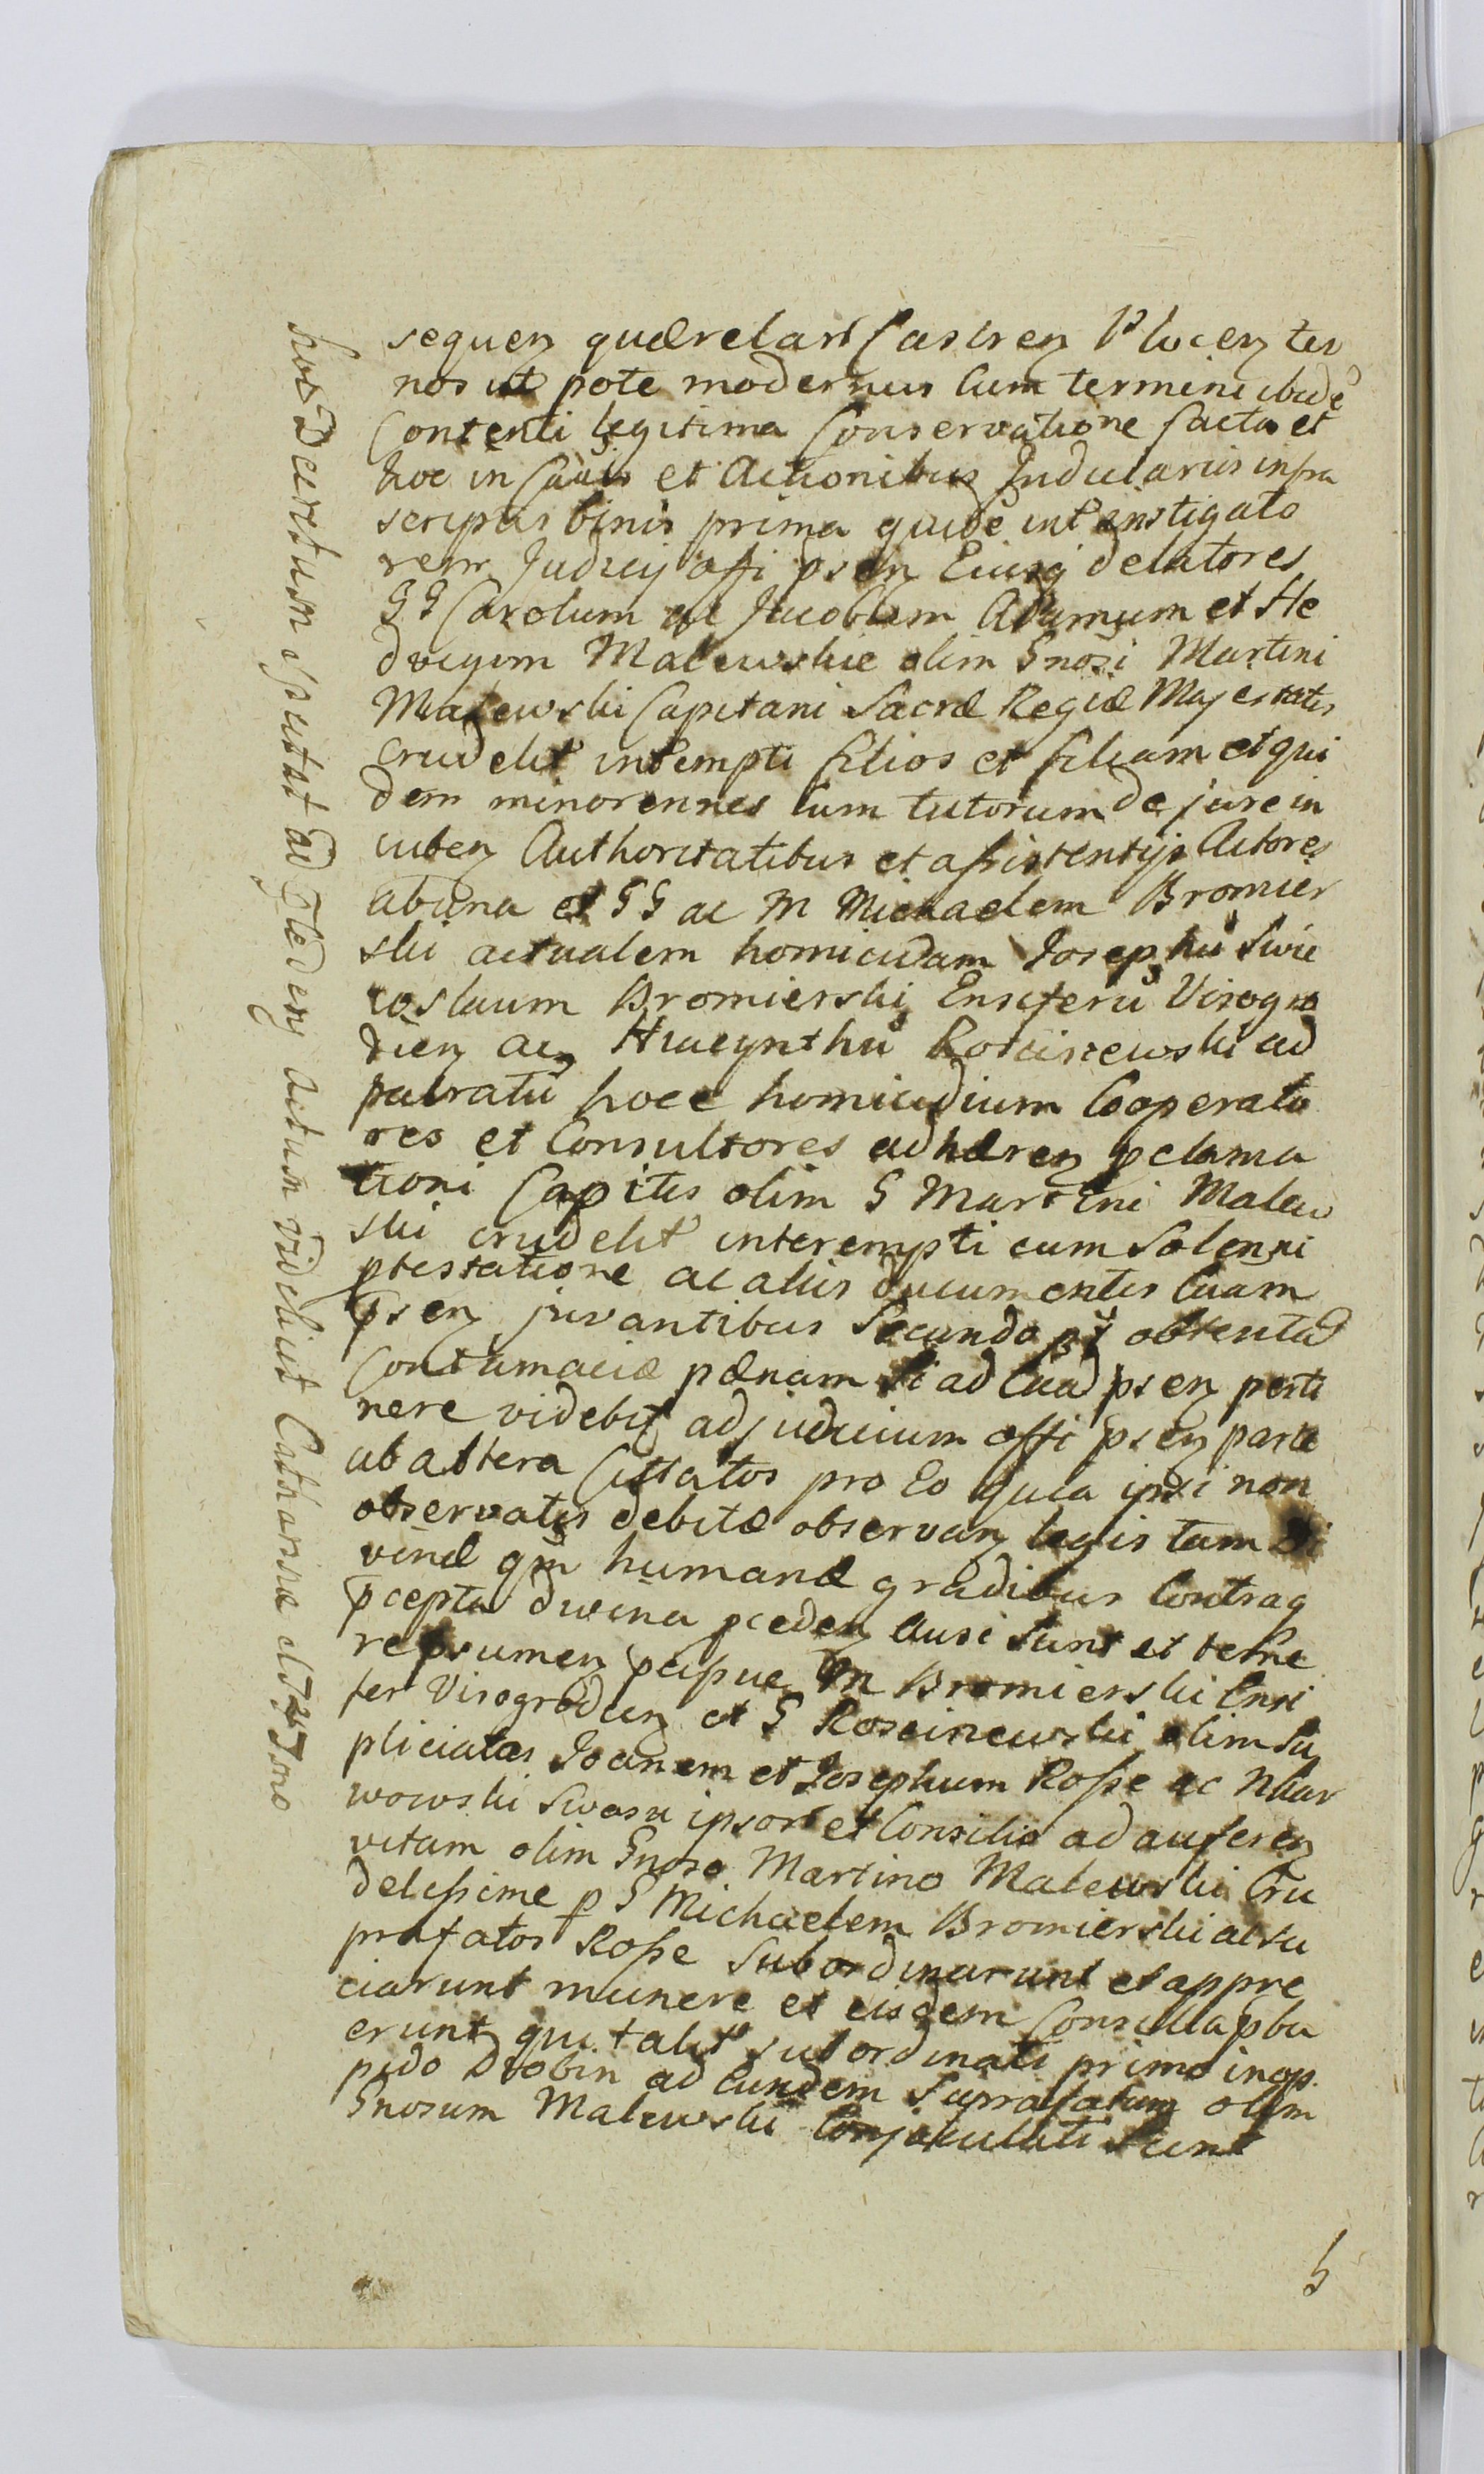 sequen querelar Castren Plocen ter
nos ut pote modernus Cum termini ibidē
Contenti legitima Conservatione facta et
hoc in Causis et Actionibus Judiciariis infra
scriptis binis prima quidē int instigato
rem Judicij offi psen Eiusq delatores
GG Carolum ac Jacobum Adamum et He
dvigim Malewskie olim Gnosi Martini
Malewski Capitani Sacræ Regiæ Majestatis
crudelit intempti filios et filiam et qui
dem minorennes cum tutorum de jure in
cuben Authoritatibus et assistentijs Actores
ab una et GG ac M Michaelem Bromier
ski actualem homicidam Josephū Swie
toslaum Bromierski Ensiferū Visogro
dien ac Hiacynthū Kosciszewski ad
patratū hoce homicidium Cooperato
res et Consultores adhæren pclama
tioni Capitis olim G Martini Malew
ski crudelit interempti cum Solenni
ptestatione ac aliis documentis Cuam
psen juvantibus Secundo pt obtentā
Contumaciæ pænam Si ad Cuad psen perti
nere videbit ad judicium offi psen parte
ab altera Cittatos pro Eo quia ipsi non
observatis debitæ observan legis tam Di
vinæ qm humanæ gradibus Contraq
pcepta divina pceden Ausi Sunt et teme
re psumen pcipue M Bromierski Ensi
fer Visogrodien et G Kosciszewski olim Su
pliciatos Joanem et Josephum Rosse ac Nar
wowski Svasu ipsor et Consilio ad auferen
vitam olim Gnoso Martino Malewski Cru
delissime p G Michaelem Bromierski actu
prafatos Rosse Subordinarunt et appre
ciarunt munere et eisdem Consilia pbu
erunt qui talit subordinati primo in op
pido Drobin ad Eundem Suprafatum olim
Gnosum Malewski Conjaculati Sunt
h
hoc Decretum spectat ad Gleden actum videlicet Catharinæ